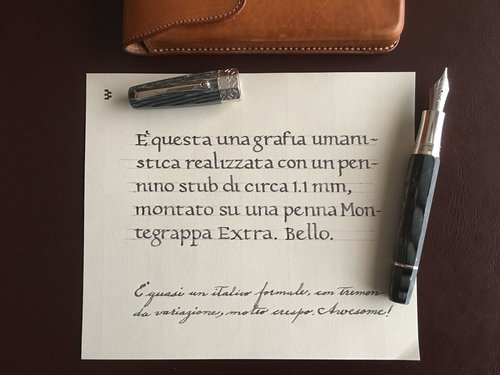 È questa una grafia umani-
stica realizzata con un pen-
nino stub di circa 1.1 mm,
montato su una penna Mon-
tegrappa Extra. Bello.
È quasi un italico formale, con tremen-
da variazione, molto crespo. Awesome!